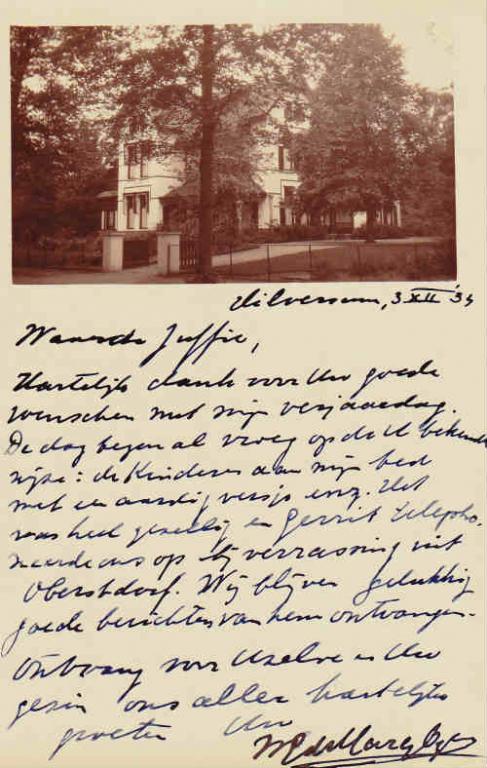 Hilversum, 3 XII '34
Waarde Juffie,
Hartelijk dank voor Uw goede
wenschen met mijn verjaardag.
De dag begon al vroeg op de U bekende
wijze: de kinderen aan mijn bed
met een aardig versje enz. Het
was heel gezellig en Gerrit telepho-
neerde ons op bij verrassing uit
Oberstdorf. Wij blijven gelukkig
goede berichten van hem ontvangen.
Ontvang voor Uzelve en Uw
gezin ons aller hartelijke
groeten Uw